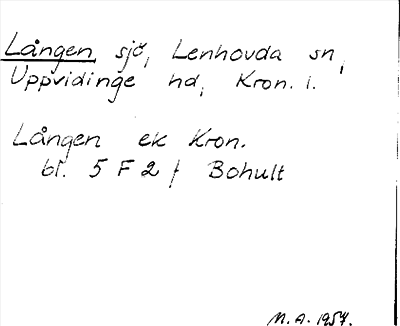 Lången, sjö, Lenhovda sn,
Uppvidinge hd, Kron. l.
Lången ek Kron.
bl. 5 F 2 f Bohult
M.A. 1957.